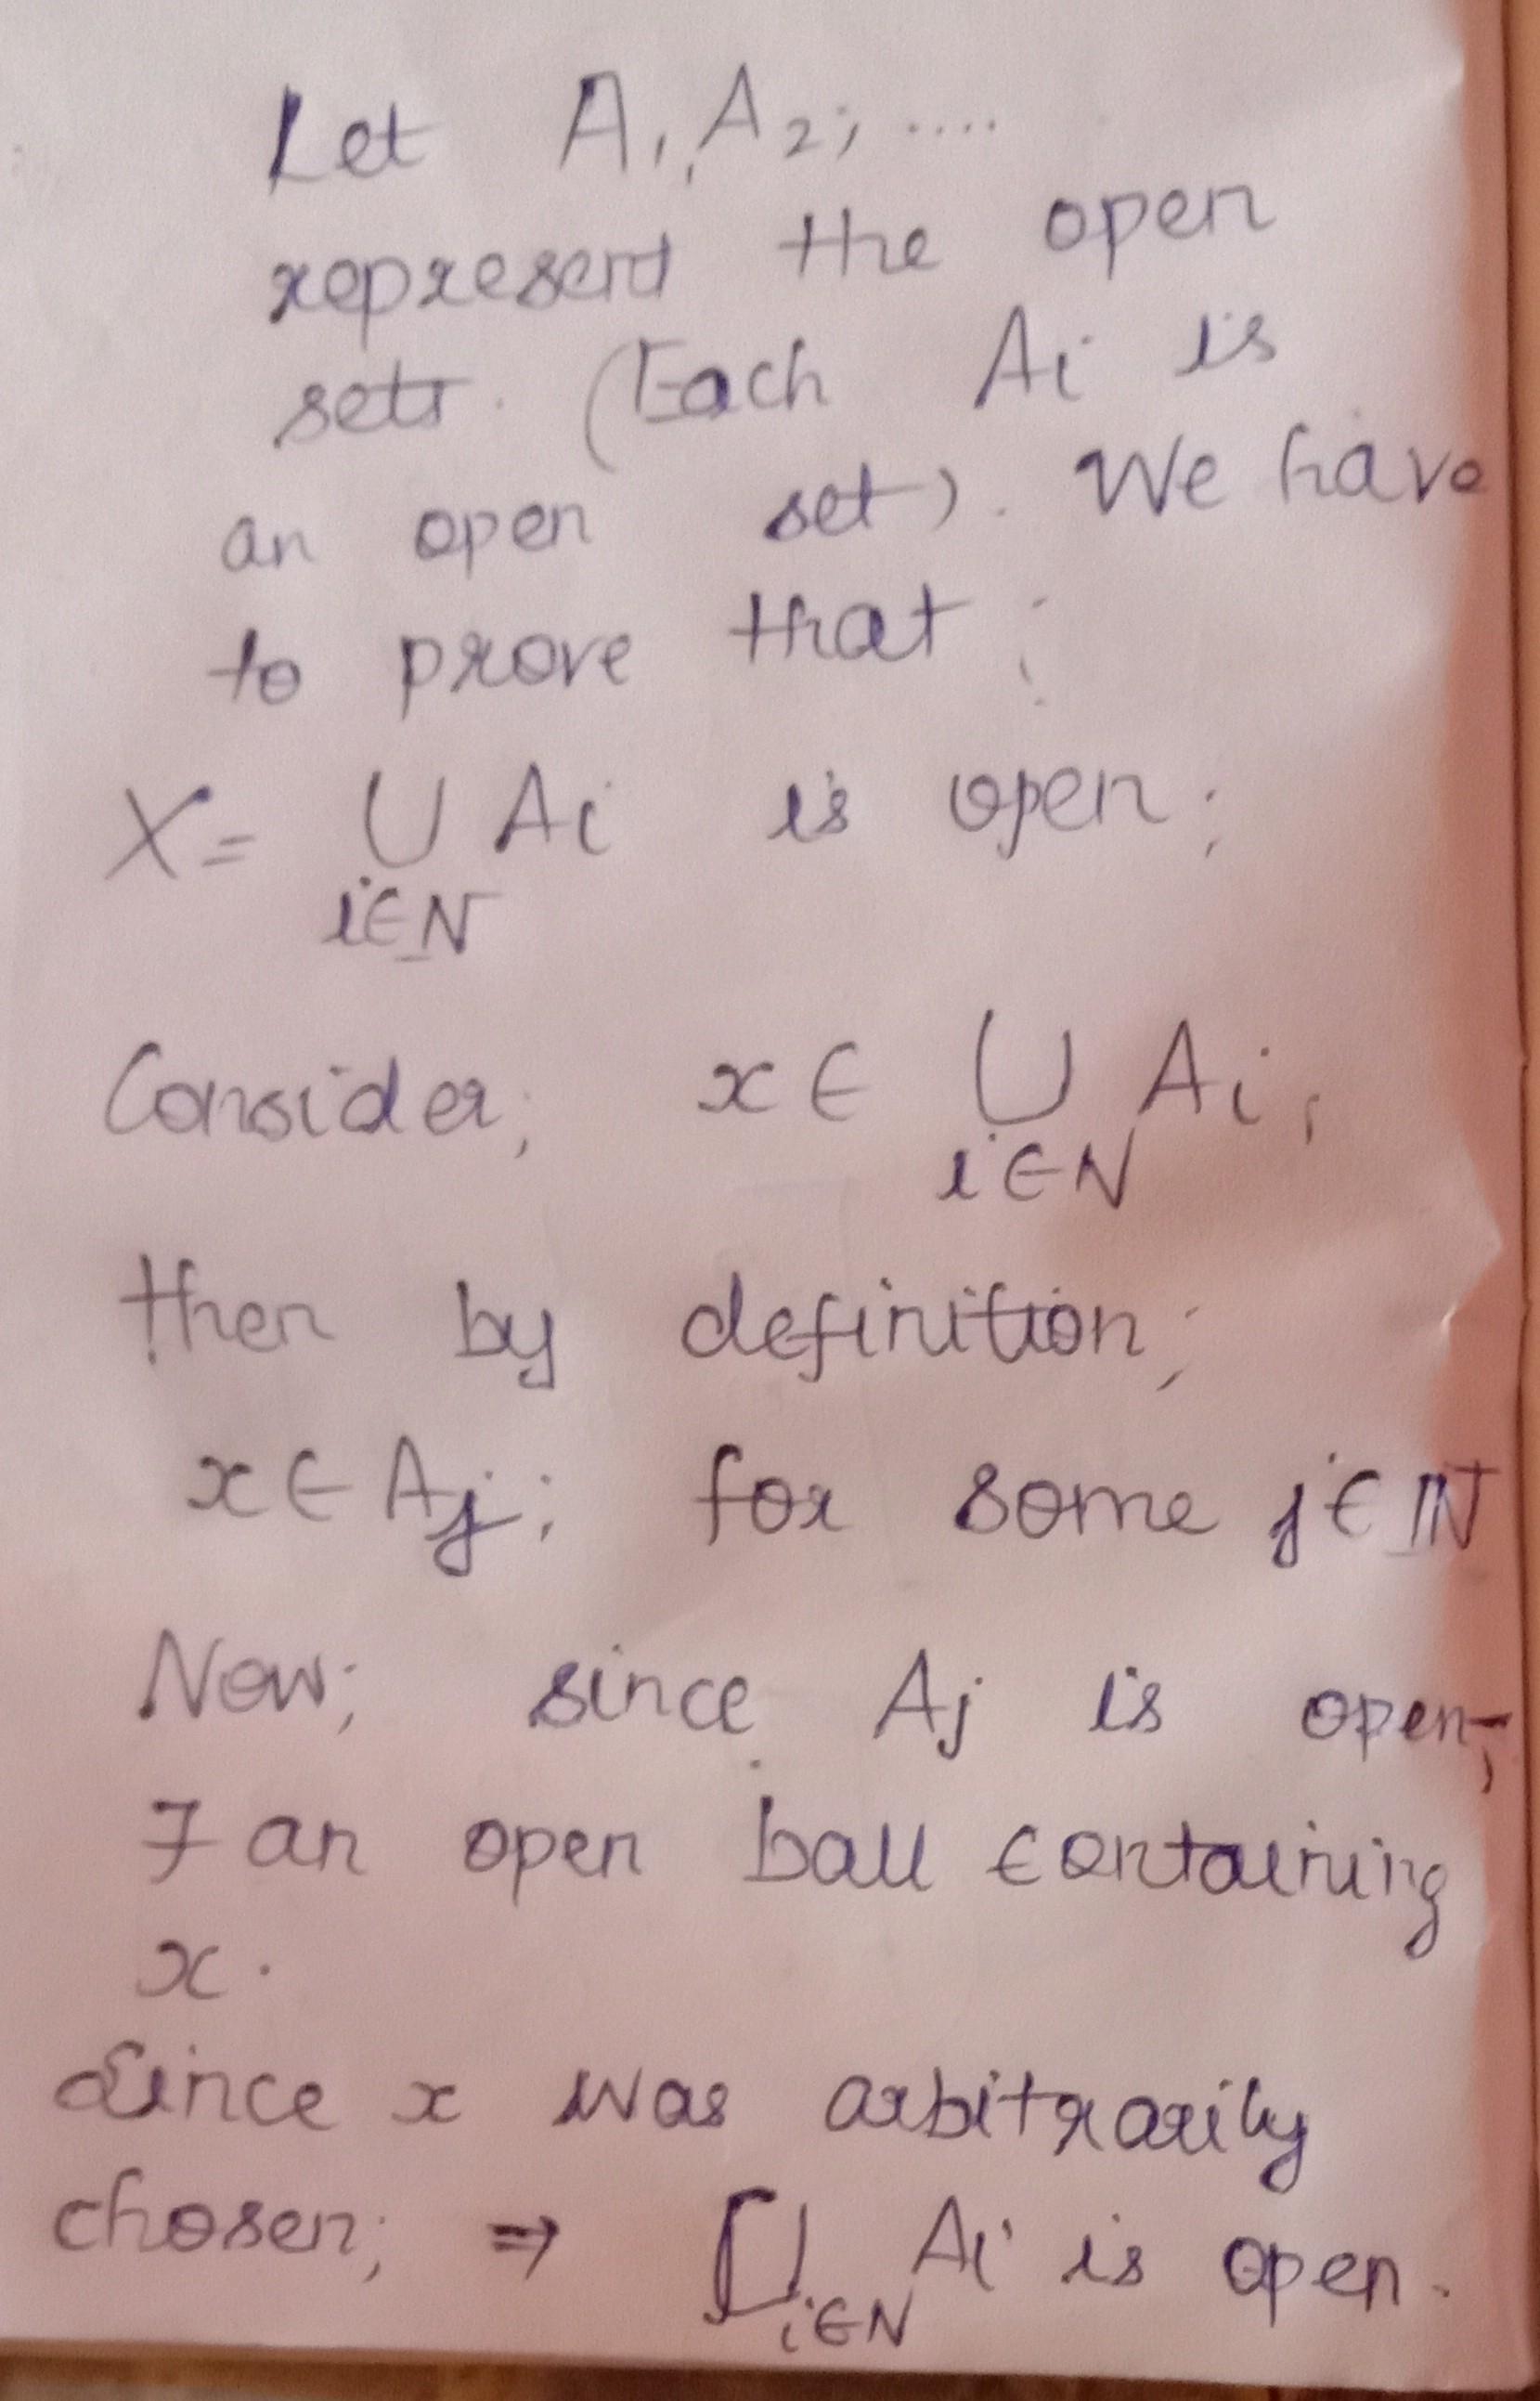 Let A1, A2, ....
represent the open
sets. (Each Ai is
an open set). We have
to prove that :
X = ∪ Ai is open;
i∈N
Consider, x ∈ ∪ Ai,
i∈N
then by definition,
x ∈ Aj; for some j∈ℕ
Now; since Aj is open,
∃ an open ball containing
x.
Since x was arbitrarily
chosen; ⇒ ∪ Ai is open.
i∈N